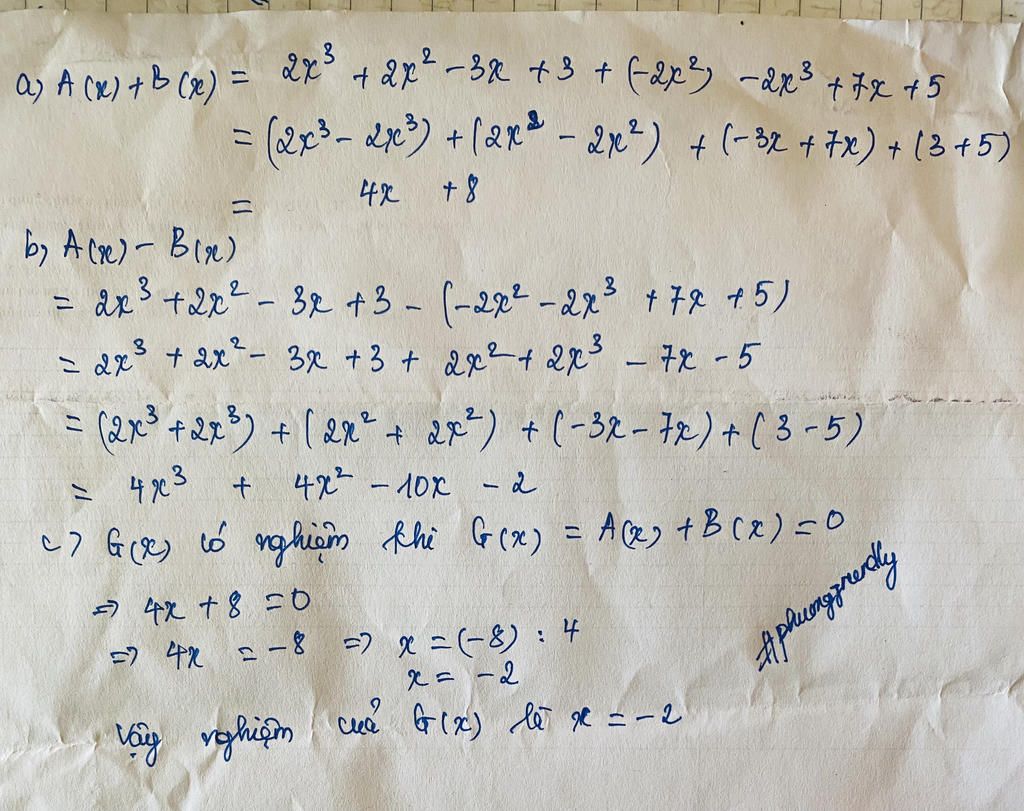 a) A(x) + B(x) = 2x³ + 2x² - 3x + 3 + (-2x²) - 2x³ + 7x + 5
= (2x³ - 2x³) + (2x² - 2x²) + (-3x + 7x) + (3 + 5)
= 4x + 8
b) A(x) - B(x)
= 2x³ + 2x² - 3x + 3 - (-2x² - 2x³ + 7x + 5)
= 2x³ + 2x² - 3x + 3 + 2x² + 2x³ - 7x - 5
= (2x³ + 2x³) + (2x² + 2x²) + (-3x - 7x) + (3 - 5)
= 4x³ + 4x² - 10x - 2
c) G(x) có nghiệm khi G(x) = A(x) + B(x) = 0
⇒ 4x + 8 = 0
⇒ 4x = -8 ⇒ x = (-8) : 4
x = -2
Vậy nghiệm của G(x) là x = -2